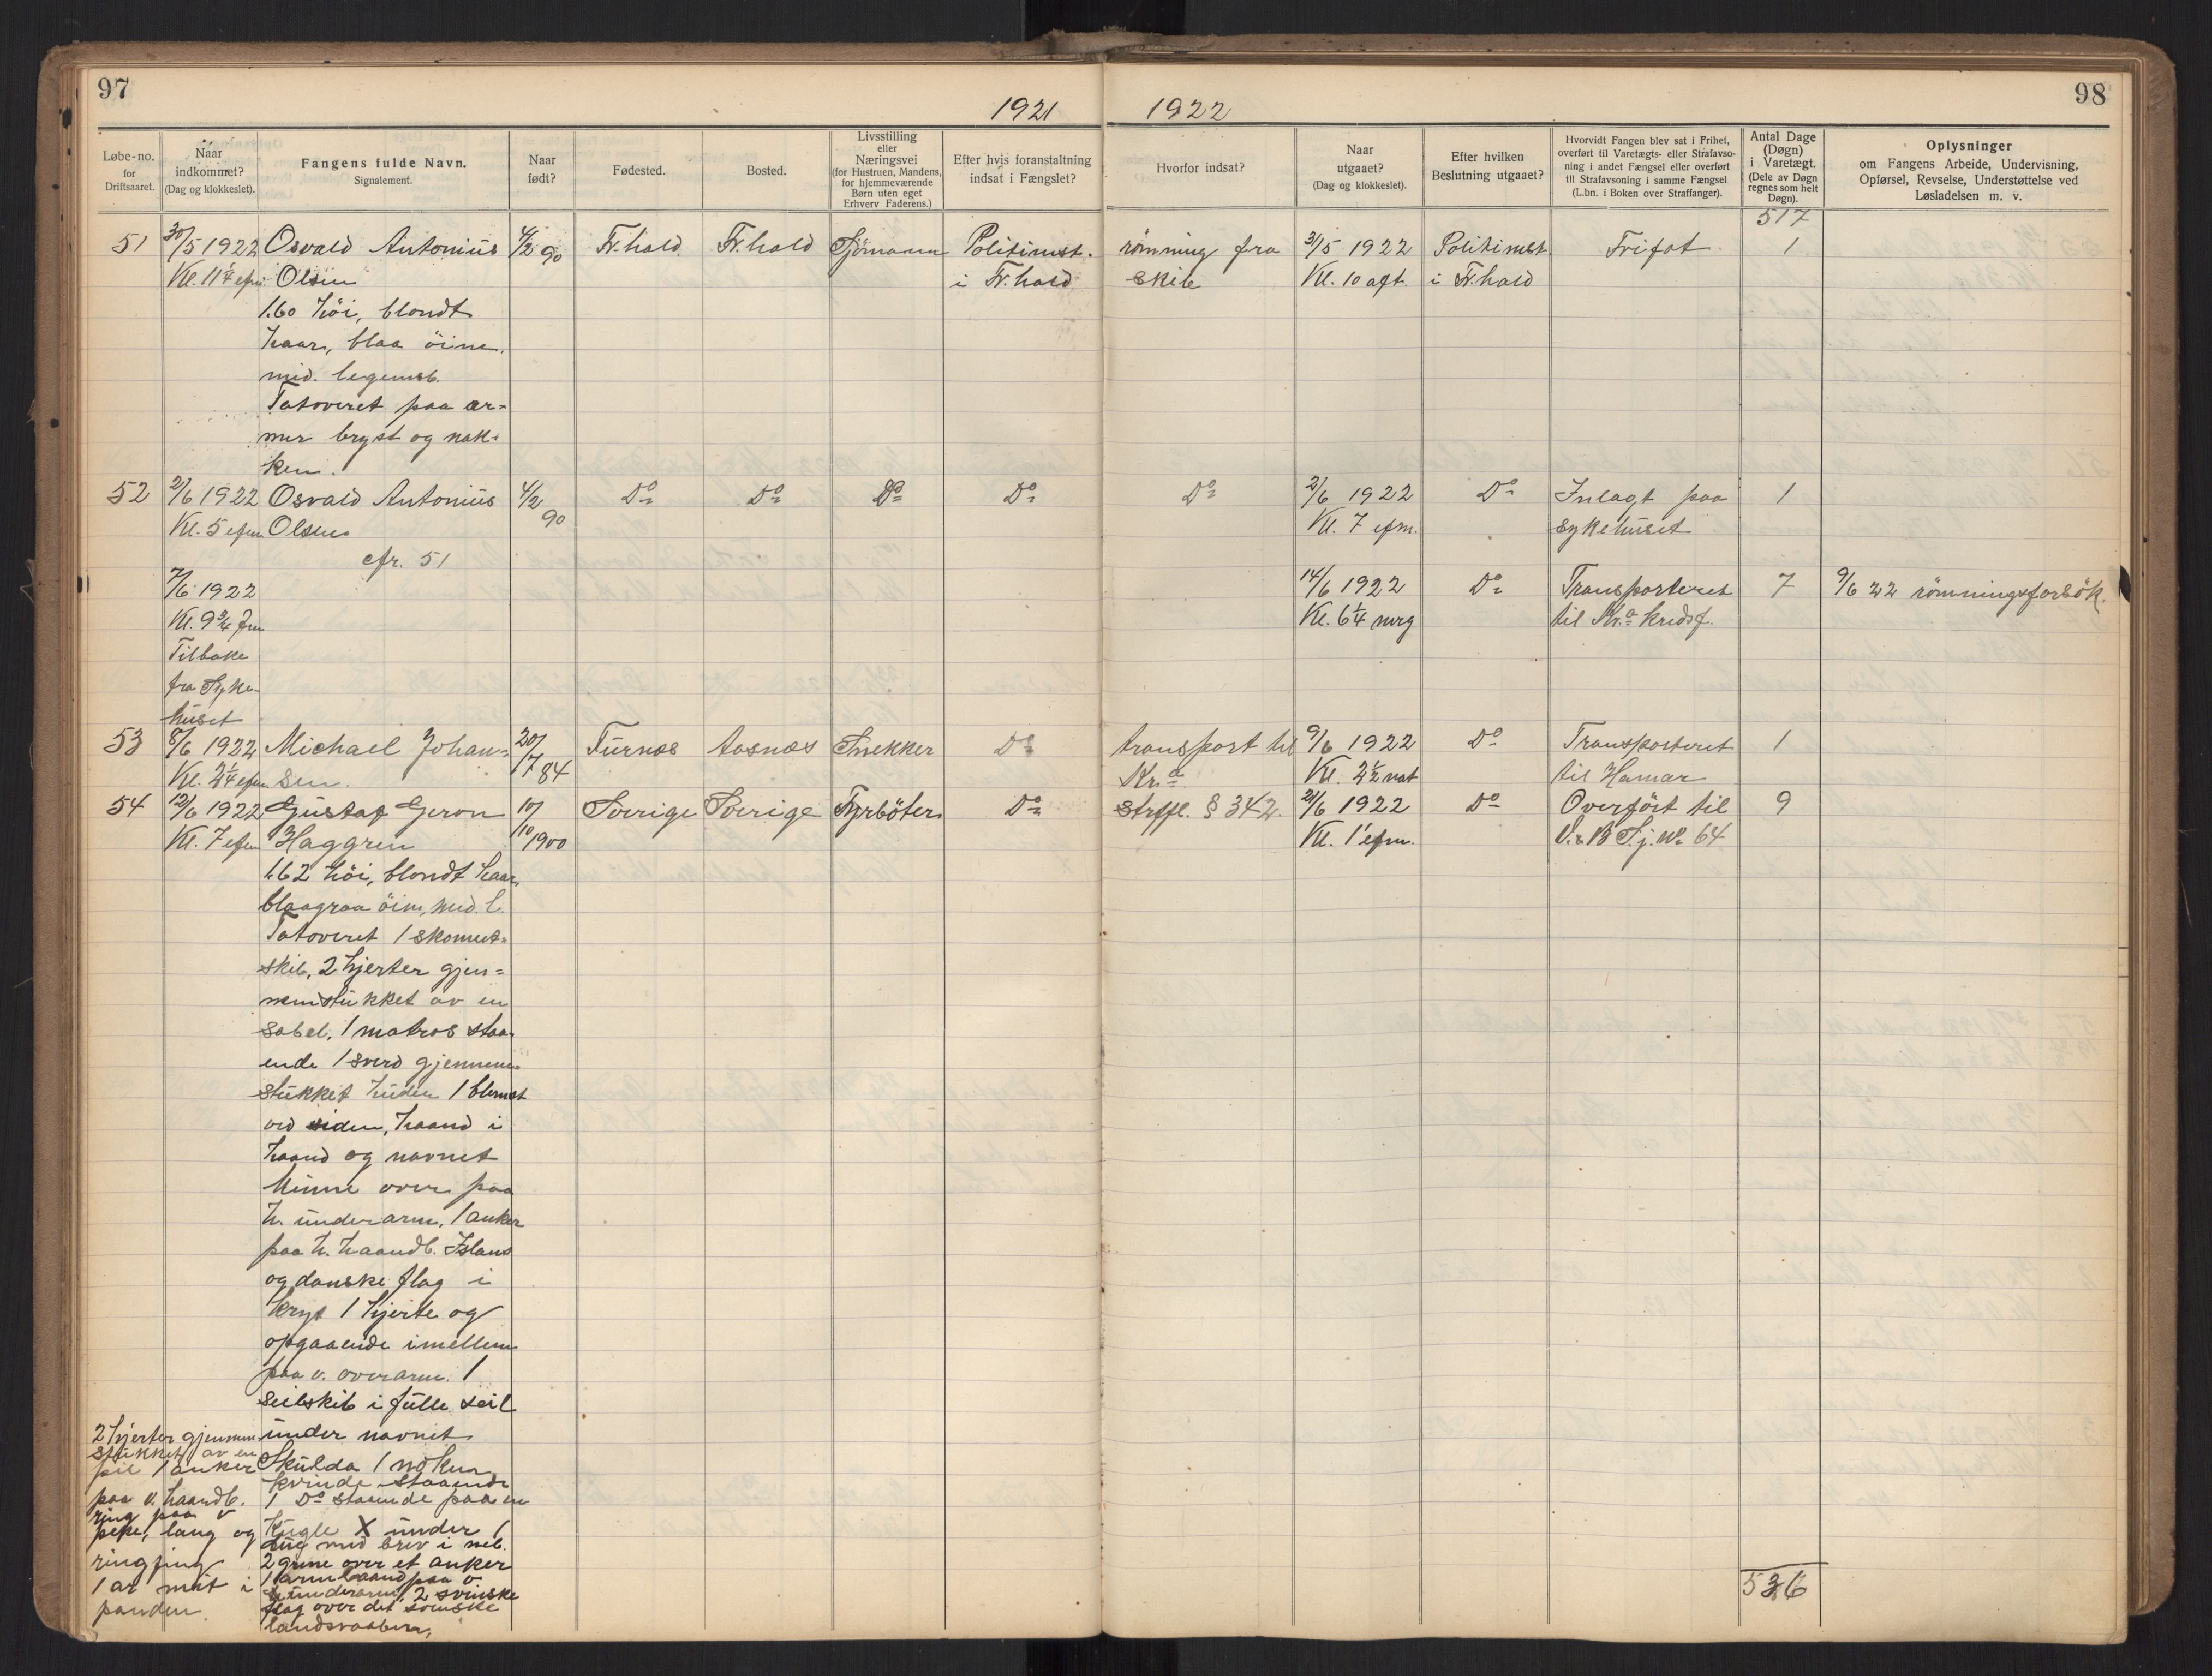 97
1921
1922
98
Løbe-no. for Driftsaaret.
Naar indkommet? (Dag og klokkeslet).
Fangens fulde Navn. Signalement.
Naar født?
Fødested.
Bosted.
Livsstilling eller Næringsvei (for Hustruen, Mandens, for hjemmeværende Børn uten eget Erhverv Faderens.)
Efter hvis foranstaltning indsat i Fængslet?
Hvorfor indsat?
Naar utgaaet? (Dag og klokkeslet).
Efter hvilken Beslutning utgaaet?
Hvorvidt Fangen blev sat i Frihet, overført til Varetægts- eller Strafavsoning i andet Fængsel eller overført til Strafavsoning i samme Fængsel (L.bn. i Boken over Straffanger).
Antal Dage (Døgn) i Varetægt. (Dele av Døgn regnes som helt Døgn).
Oplysninger om Fangens Arbeide, Undervisning, Opførsel, Revselse, Understøttelse ved Løsladelsen m. v.
517
51 30/5 1922 Osvald Antonius 4/2 90 Fr.hald Fr.hald Sjömann Politimst. römning fra 31/5 1922 Politimst. Frifot 1
Kl. 11 1/4 efm. Olsen i Fr.hald skib Kl. 10 aft. i Fr.hald
1.60 höi, blondt
haar, blaa öine,
mid. legemsb.
Tatoveret paa ar-
mer bryst og nak-
ken.
52 2/6 1922 Osvald Antonius 4/2 90 Do Do Do Do Do 2/6 1922 Do Inlagt paa 1
Kl. 5 efm Olsen Kl. 7 efm. sykehuset
cfr. 51
7/6 1922 14/6 1922 Do Transporteret 7 9/6 22 römningsforsök.
Kl. 9 3/4 fm Kl. 6 1/4 mrg til Kr.a kredsf.
Tilbake
fra Syke-
huset
53 8/6 1922 Michael Johan- 20/7 84 Furnæs Aasnæs Snekker Do transport til 9/6 1922 Do Transporteret 1
Kl. 2 1/4 efm sen. Kr.a Kl. 2 1/2 nat til Hamar
54 12/6 1922 Gustaf Geron 10/10 1900 Sverige Sverige Fyrböter Do strffl. § 342. 21/6 1922 Do Overfört til 9
Kl. 7 efm Haggren Kl. 1 efm. 64
1.62 höi, blondt haar,
blaagraa öine, mid. l.
Tatoveret 1 skonnert-
skib, 2 hjerter gjen-
nemstukket av en
sabel, 1 matros staa-
ende 1 sverd gjennem-
stukket huden 1 blomst
ved siden, haand i
haand og navnet
Minne over paa
h. underarm, 1 anker
paa h. haandb. Islans
og danske flag i
kryt 1 hjerte og
opgaaende imellem
paa v. overarm. 1
seilskib i fulle seil
under navnet
Skulda 1 nöken
kvinde staaende
1 Do staaende paa en
Kugle X under 1
due med brev i neb.
2 grene over et anker
1 armbaand paa v
underarm, 2 svenske
flag over det svenske
landsvaaben,
2 hjerter gjennem
stukket av en
pil 1 anker
paa v. haandb.
ring paa v
peke, lang og
ringfing
1 ar midt i
panden.
536